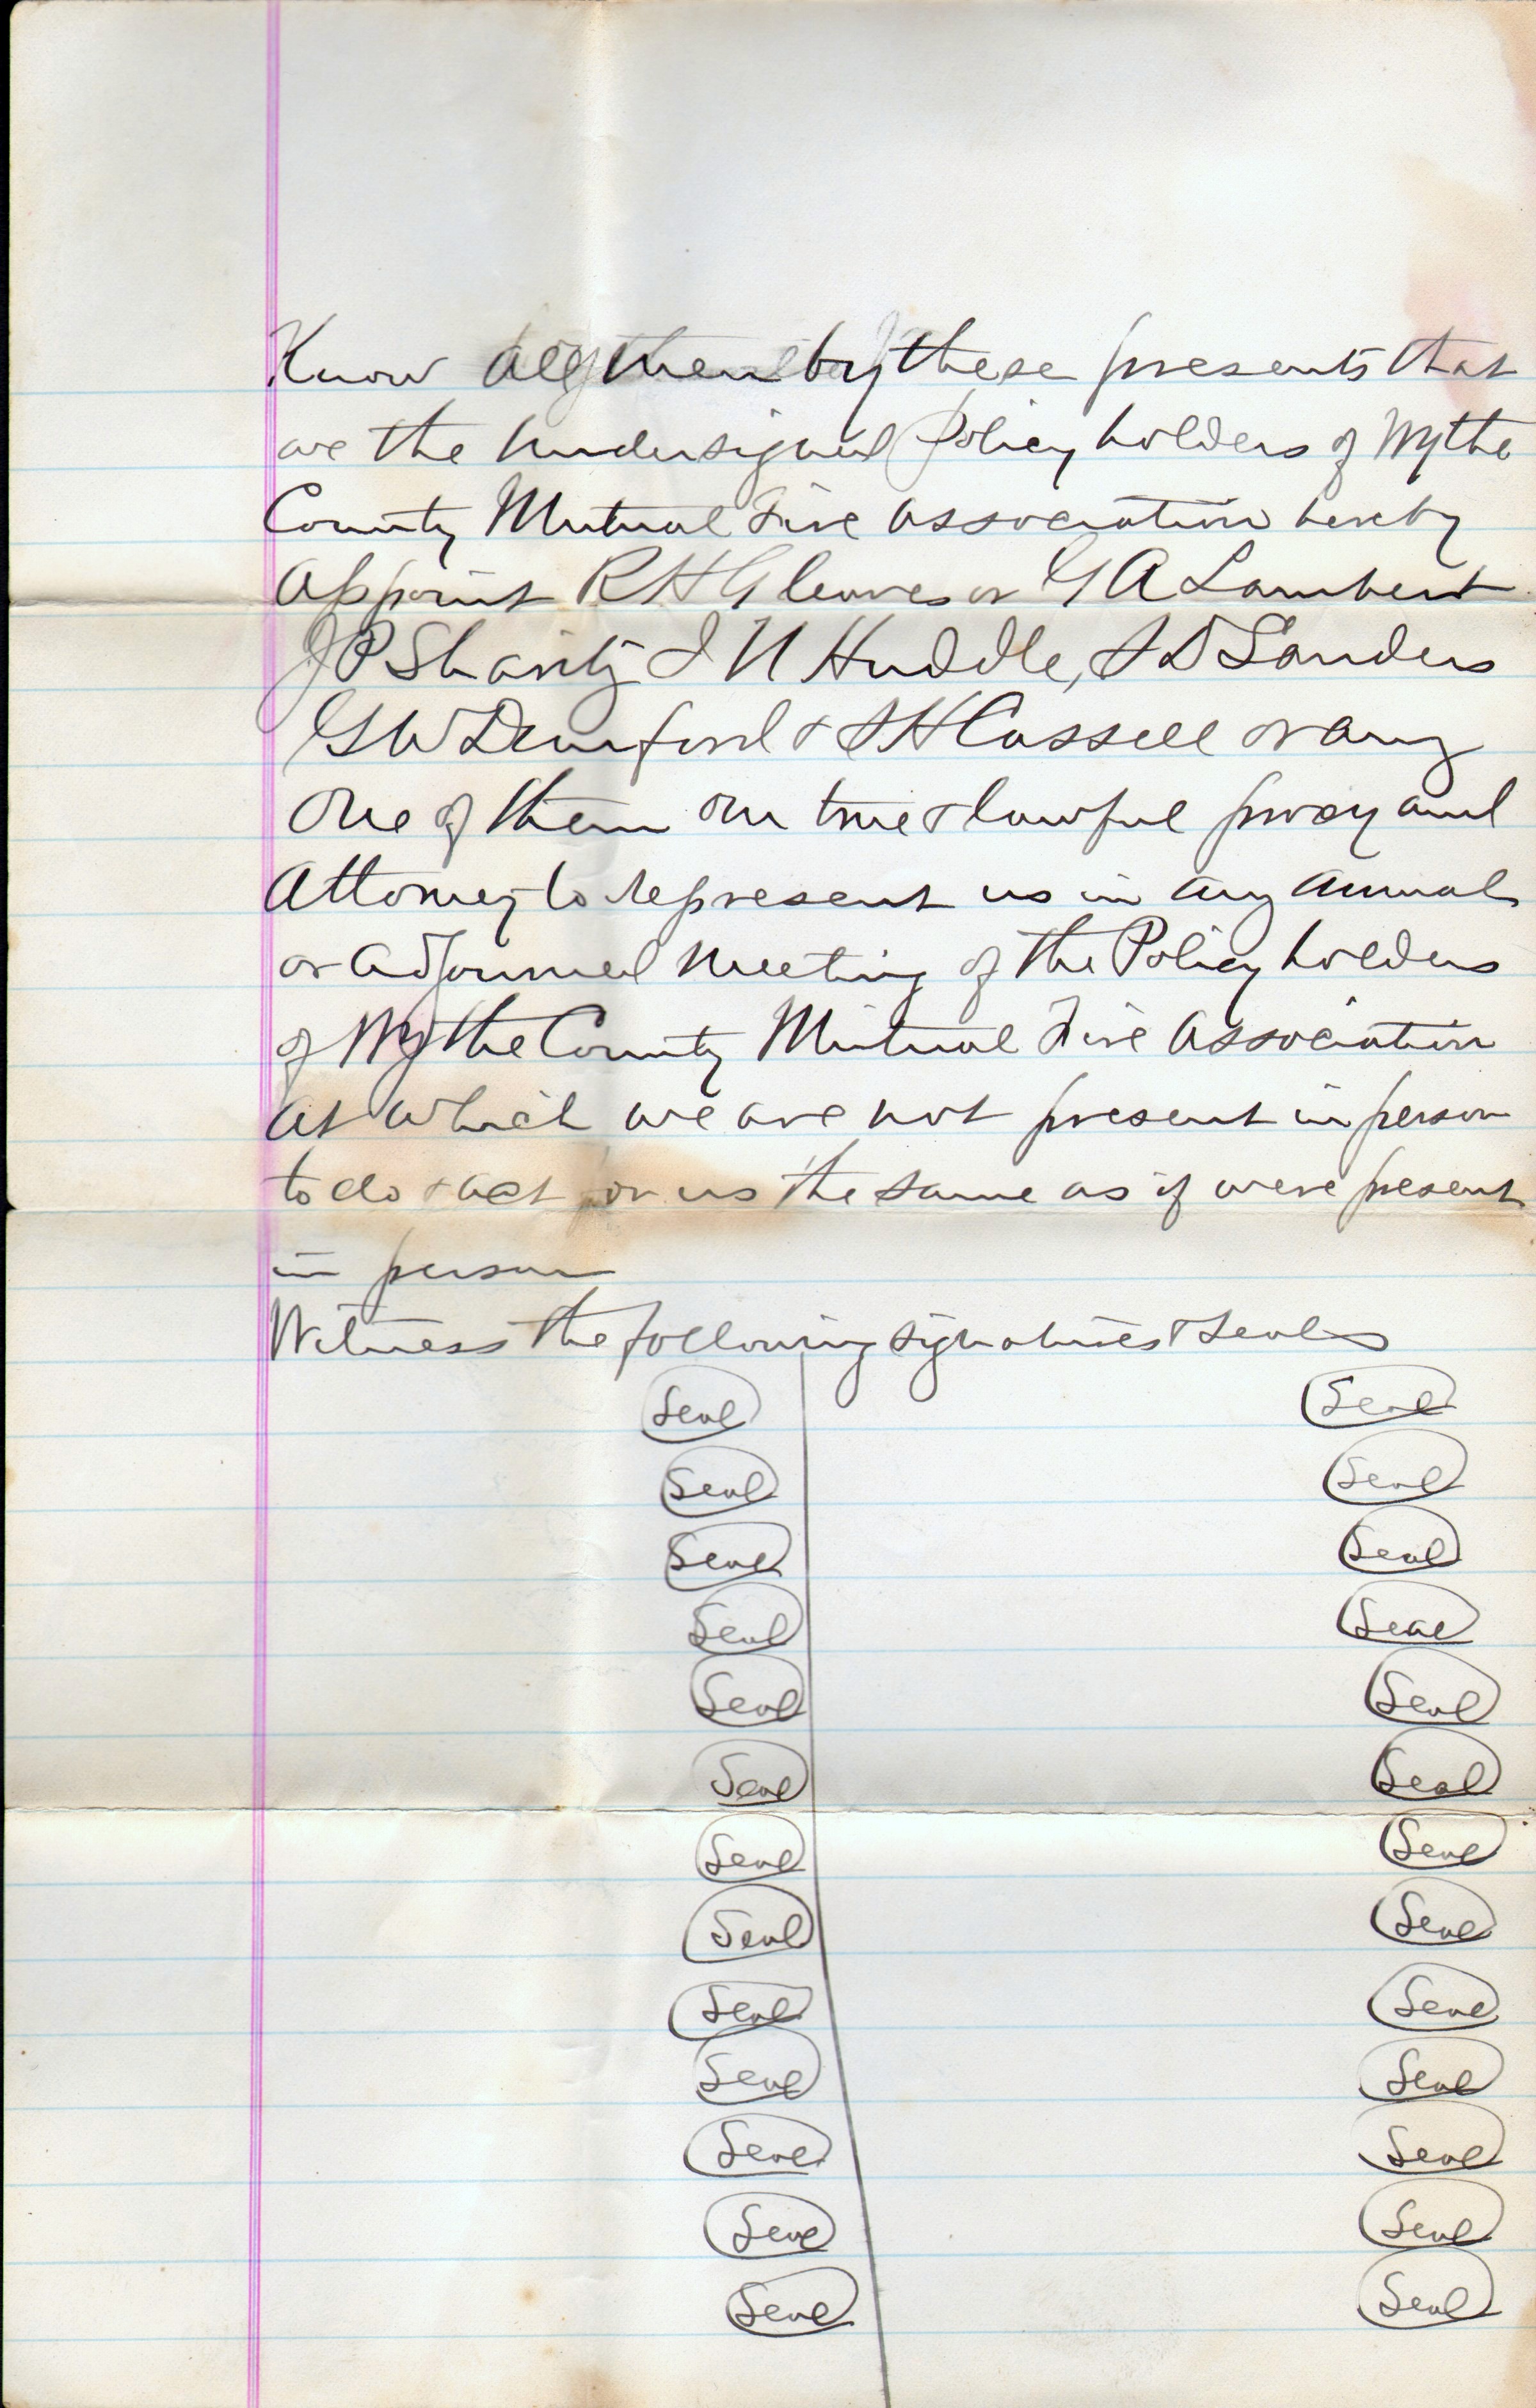 Know all men by these presents that
we the undersigned Policy holders of Wythe
County Mutual Fire Association hereby
appoint R H Gleaves or G A Lambert
J P Sharitz I N Huddle, S D Sanders
G W Dunford & S H Cassell or any
one of them our true & lawful proxy and
Attorney to represent us in any annual
or adjourned meeting of the Policy holders
of Wythe County Mutual Fire Association
at which we are not present in person
to do & act for us the same as if were present
in person
Witness the following signatures & Seals
Seal Seal
Seal Seal
Seal Seal
Seal Seal
Seal Seal
Seal Seal
Seal Seal
Seal Seal
Seal Seal
Seal Seal
Seal Seal
Seal Seal
Seal Seal